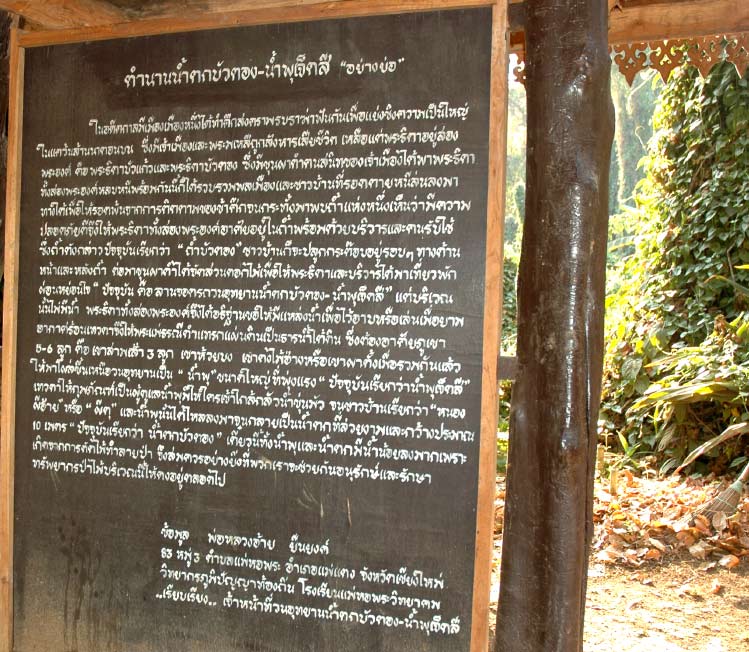 ตำนานน้ำตกบัวตอง-น้ำพุเจ็ดสี "อย่างย่อ"
"ในอดีตกาลมีเมืองเมืองหนึ่งได้ทำศึกสงครามรบราฆ่าฟันกันเพื่อแย่งชิงความเป็นใหญ่
"ในแคว้นล้านนาตอนบน ซึ่งมีเจ้าเมืองและพระมเหสีถูกสังหารเสียชีวิต เหลือแต่พระธิดาอยู่สอง
พระองค์ คือ พระธิดาบัวแก้วและพระธิดาบัวตอง ซึ่งมีขุนผาดำคนสนิทของเจ้าเมืองได้พาพระธิดา
ทั้งสองพระองค์หลบหนีพร้อมกันนี้ก็ได้รวบรวมพลเมืองและชาวบ้านที่รอดตายหนีล่นลงมา
ทางใต้เพื่อให้รอดพ้นจากการติดตามของข้าศึกจนกระทั่งมาพบถ้ำแห่งหนึ่งเห็นว่ามีความ
ปลอดภัยดีจึงให้พระธิดาทั้งสองพระองค์อาศัยอยู่ในถ้ำพร้อมด้วยบริวารและคนรับใช้
ซึ่งถ้ำดังกล่าวปัจจุบันเรียกว่า "ถ้ำบัวตอง" ชาวบ้านก็จะปลูกกระต๊อบอยู่รอบๆ ทางด้าน
หน้าและหลังถ้ำ ต่อมาขุนผาดำได้จัดสวนดอกไม้เพื่อให้พระธิดาและบริวารได้มาเที่ยวพัก
ผ่อนหย่อนใจ "ปัจจุบัน คือ ลานจอดรถวนอุทยานน้ำตกบัวตอง-น้ำพุเจ็ดสี" แต่บริเวณ
นั้นไม่มีน้ำ พระธิดาทั้งสองพระองค์จึงได้อธิฐานขอให้มีแหล่งน้ำเพื่อไว้อาบหรือเล่นเพื่อยาม
อากาศร้อนเทวดาจึงให้พระแม่ธรณีดำแทรกแผ่นดินเป็นธารน้ำใต้ดิน ซึ่งต้องอาศัยภูเขา
5-6 ลูก คือ เขาสามเส้า 3 ลูก เขาห้วยบง เขาดังไม้อ้างหรือเขาผาตั้งเพื่อรวมกันแล้ว
ให้มาไหลขึ้นเหนือวนอุทยานเป็น "น้ำพุ" ขนาดใหญ่ที่พุ่งแรง "ปัจจุบันเรียกว่าน้ำพุเจ็ดสี"
เทวดาให้ภูผีภัณฑ์เป็นผู้ดูแลน้ำพุมิให้ใครเข้าใกล้กลัวน้ำขุ่นมัว จนชาวบ้านเรียกว่า "หนอง
ผีอ้าย" หรือ "ผีดุ" และน้ำพุนั้นได้ไหลลงมาจนกลายเป็นน้ำตกที่สวยงามและกว้างประมาณ
10 เมตร "ปัจจุบันเรียกว่า น้ำตกบัวตอง" เดี๋ยวนี้ทั้งน้ำพุและน้ำตกมีน้ำน้อยลงมากเพราะ
เกิดจากการตัดไม้ทำลายป่า จึงสมควรอย่างยิ่งที่พวกเราจะช่วยกันอนุรักษ์และรักษา
ทรัพยากรป่าไม้บริเวณนี้ให้คงอยู่ตลอดไป
ข้อมูล พ่อหลวงอ้าย ยืนยงค์
83 หมู่ 3 ตำบลแม่หอพระ อำเภอแม่แตง จังหวัดเชียงใหม่
วิทยากรภูมิปัญญาท้องถิ่น โรงเรียนแม่หอพระวิทยาคม
..เรียบเรียง.. เจ้าหน้าที่วนอุทยานน้ำตกบัวตอง-น้ำพุเจ็ดสี